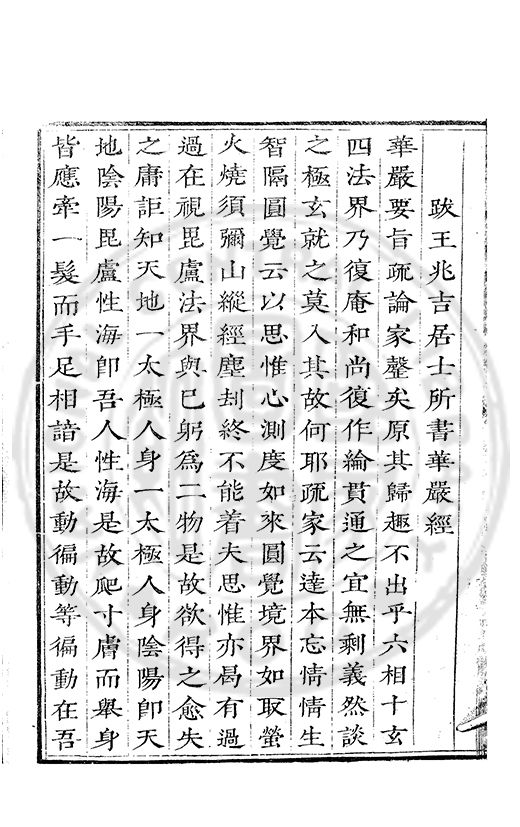 跋王兆吉居士所書華嚴經
華嚴要旨疏論家罄矣原其歸趣不出乎六相十玄
四法界乃復庵和尚復作綸貫通之宜無剩義然談
之極玄就之莫入其故何耶疏家云達本忘情情生
智隔圓覺云以思惟心測度如來圓覺境界如取螢
火燒須彌山縱經塵刦終不能着夫思惟亦曷有過
過在視毘盧法界與巳躬為二物是故欲得之愈失
之庸詎知天地一太極人身一太極人身陰陽卽天
地陰陽毘盧性海卽吾人性海是故爬寸膚而舉身
皆應牽一髮而手足相諳是故動徧動等徧動在吾